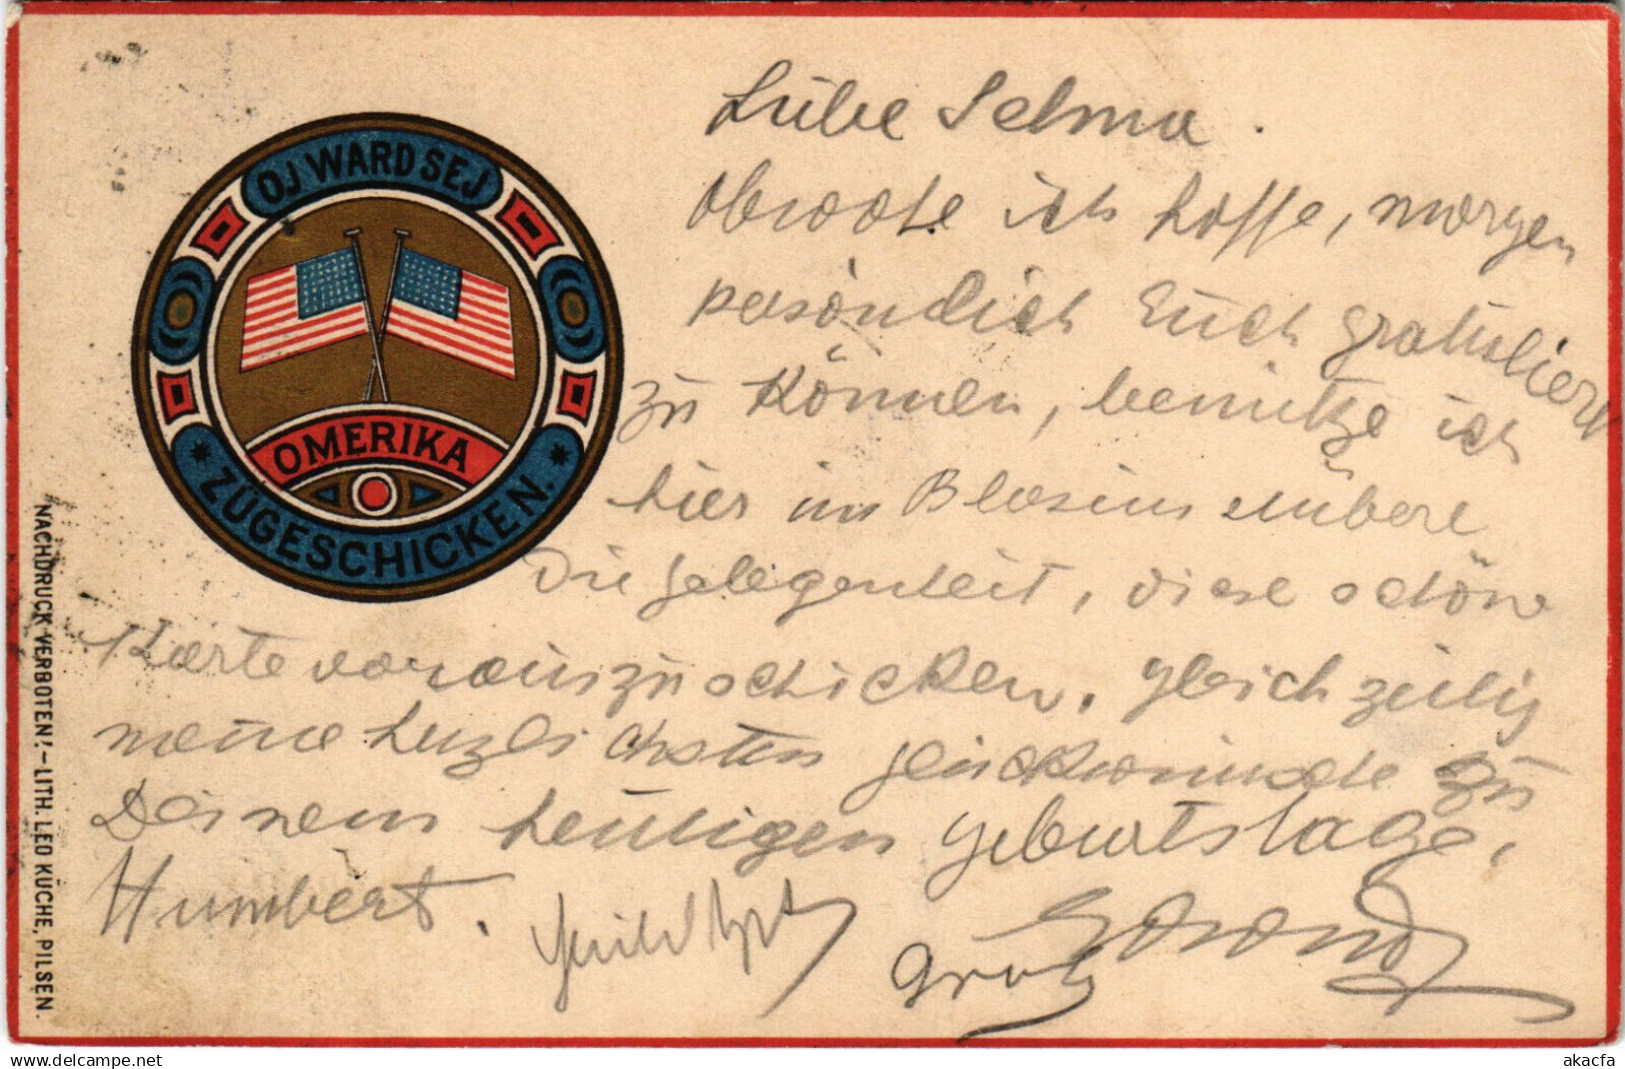 OJ WARD SEJ
OMERIKA
* ZÜGESCHICKEN. *
NACHDRUCK VERBOTEN! – LITH. LEO KÜCHE, PILSEN.
Liebe Selma.
Obwohl ich hoffe, morgen
persönlich Euch gratulieren
zu können, benütze ich
hier im
die Gelegenheit, diese schöne
Karte vorauszuschicken, gleichzeitig
meine herzlichsten Glückwünsche zu
Deinem heutigen Geburtstage.
Humbert.
akacfa